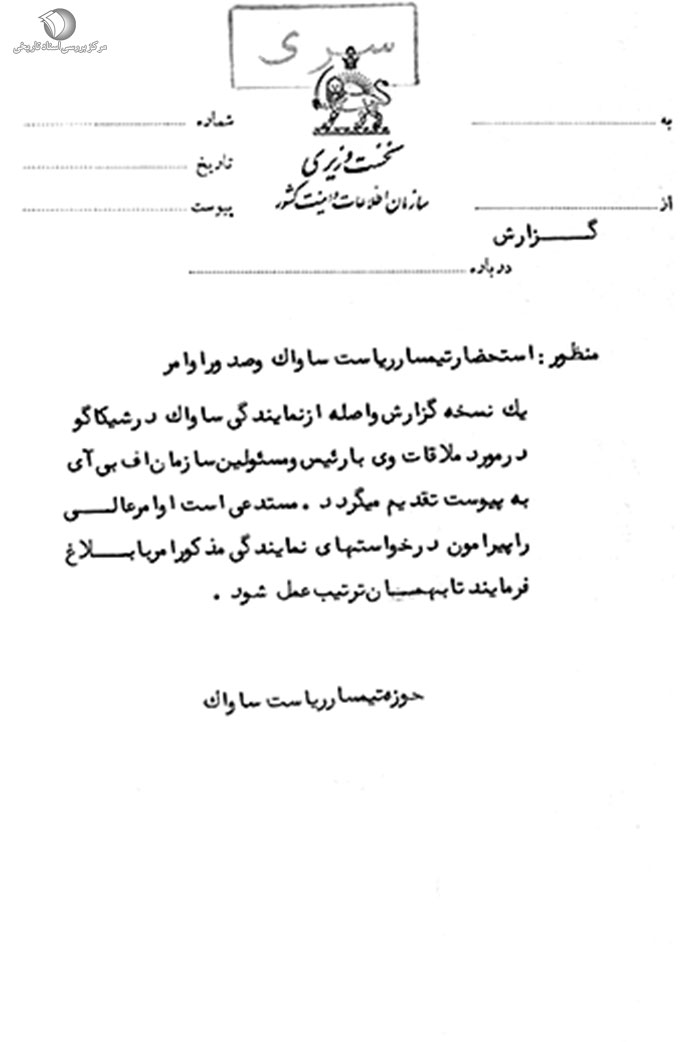 مرکز بررسی اسناد تاریخی
سری
نخست وزیری
سازمان اطلاعات و امنیت کشور
به
از
شماره
تاریخ
پیوست
گزارش
درباره
منظور : استحضار تیمسار ریاست ساواک و صدور اوامر
یک نسخه گزارش واصله از نمایندگی ساواک در شیکاگو
در مورد ملاقات وی با رئیس و مسئولین سازمان اف بی آی
به پیوست تقدیم میگردد . مستدعی است اوامر عالی
را پیرامون درخواستهای نمایندگی مذکور امر با بلاغ
فرمایند تا بهمان ترتیب عمل شود .
حوزه تیمسار ریاست ساواک